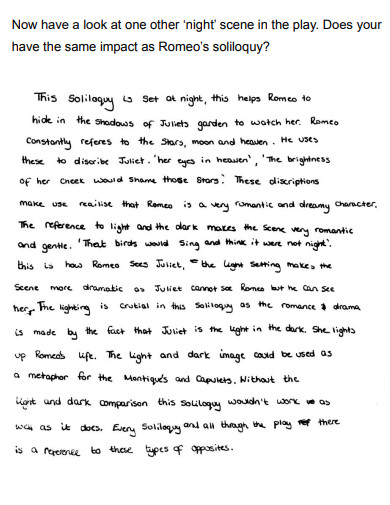 Now have a look at one other 'night' scene in the play. Does your
have the same impact as Romeo's soliloquy?
This Soliloquy is Set at night, this helps Romeo to
hide in the shadows of Juliets garden to watch her. Romeo
Constantly referes to the Stars, moon and heaven. He uses
these to discribe Juliet. 'her eyes in heaven', 'The brightness
of her cheek would shame those stars'. These discriptions
make use reailise that Romeo is a very rumantic and dreamy character.
The reference to light and the dark makes the Scene very romantic
and gentle. 'That birds would Sing and think it were not night'.
this is how Romeo Sees Juliet, the light Setting makes the
Scene more dramatic as Juliet cannot see Romeo but he can See
her. The lighting is crutial in this Soliloquy as the romance & drama
is made by the fact that Juliet is the light in the dark. She lights
up Romeo's life. The light and dark image could be used as
a metaphor for the Montique's and Capulets. Without the
light and dark comparison this Soliloquy wouldn't work as
well as it does. Every Soliloquy and all through the play ref there
is a reference to these types of opposites.